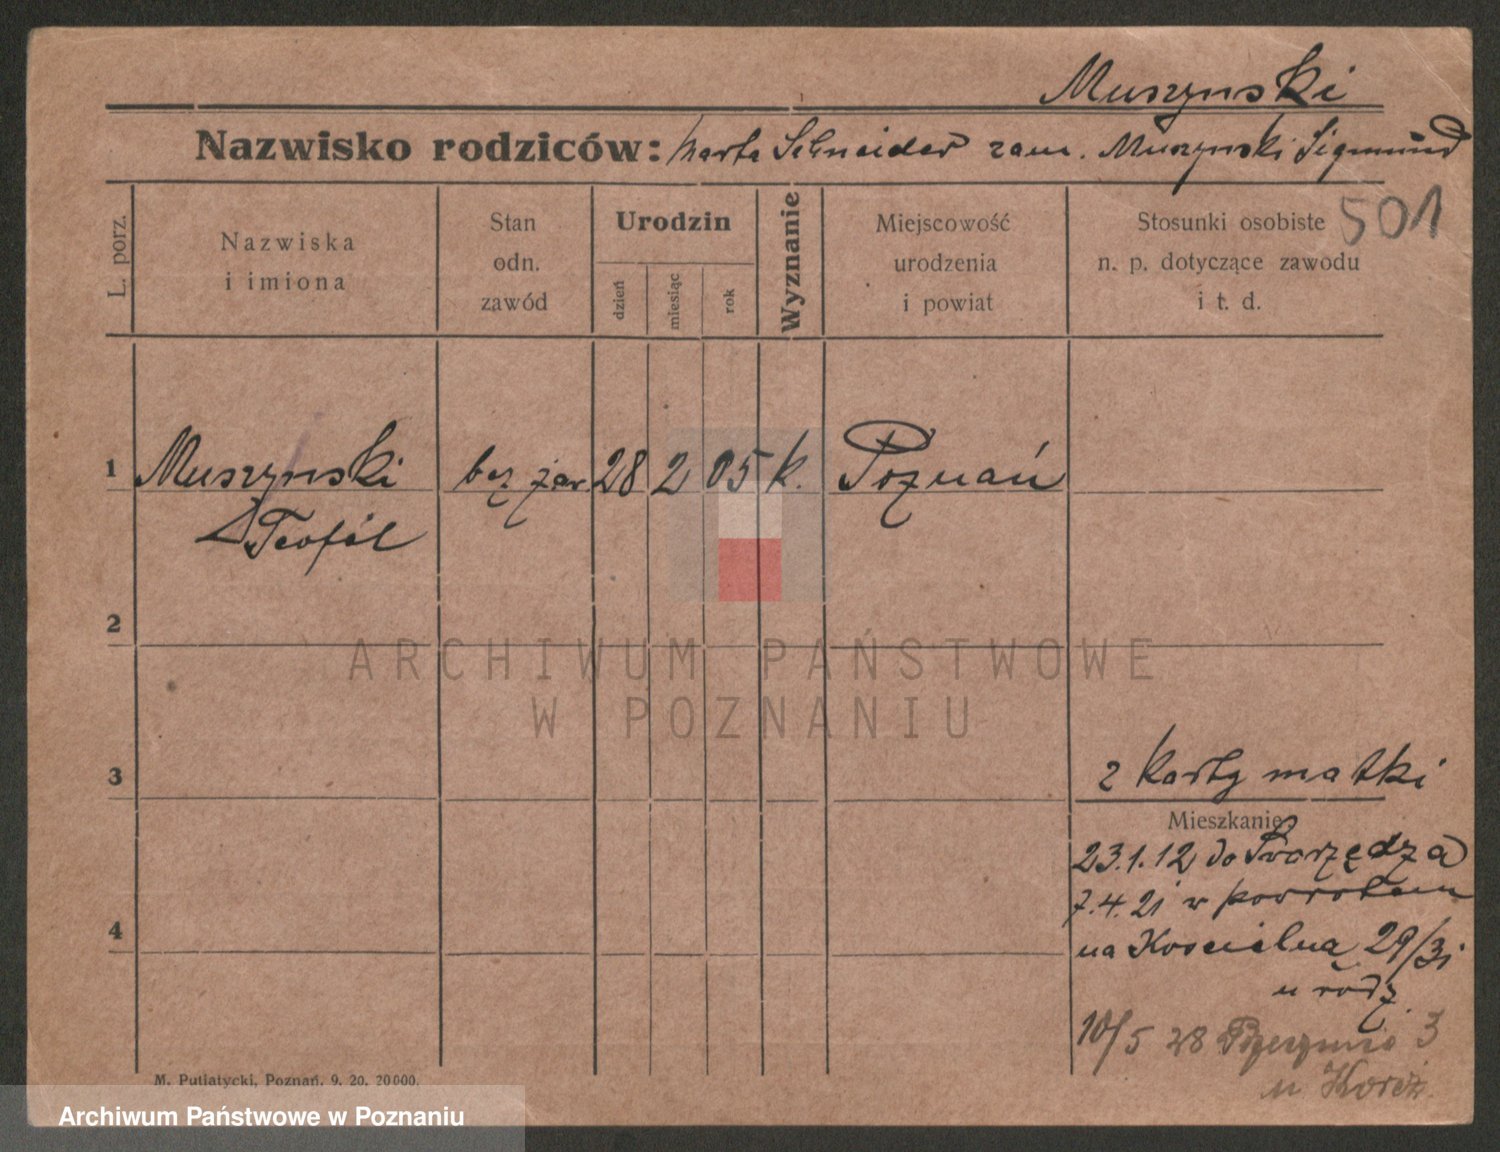 Muszynski
Nazwisko rodziców: Marta Schneider zam. Muszynski Sigmund
501
L. porz.
Nazwiska
i imiona
Stan
odn.
zawód
Urodzin
dzień
miesiąc
rok
Wyznanie
Miejscowość
urodzenia
i powiat
Stosunki osobiste
n. p. dotyczące zawodu
i t. d.
1 Muszynski bez zaw. 28 2 05 k. Poznań
Teofil
2
ARCHIWUM PAŃSTWOWE
W POZNANIU
3
z karty matki
Mieszkanie
23.1.12 do Swarzędza
7.4.21 z powrotem
na Koscielna 29/31
u rodz.
4
10/5 28 3
M. Putiatycki, Poznań. 9. 20. 20000.
Archiwum Państwowe w Poznaniu